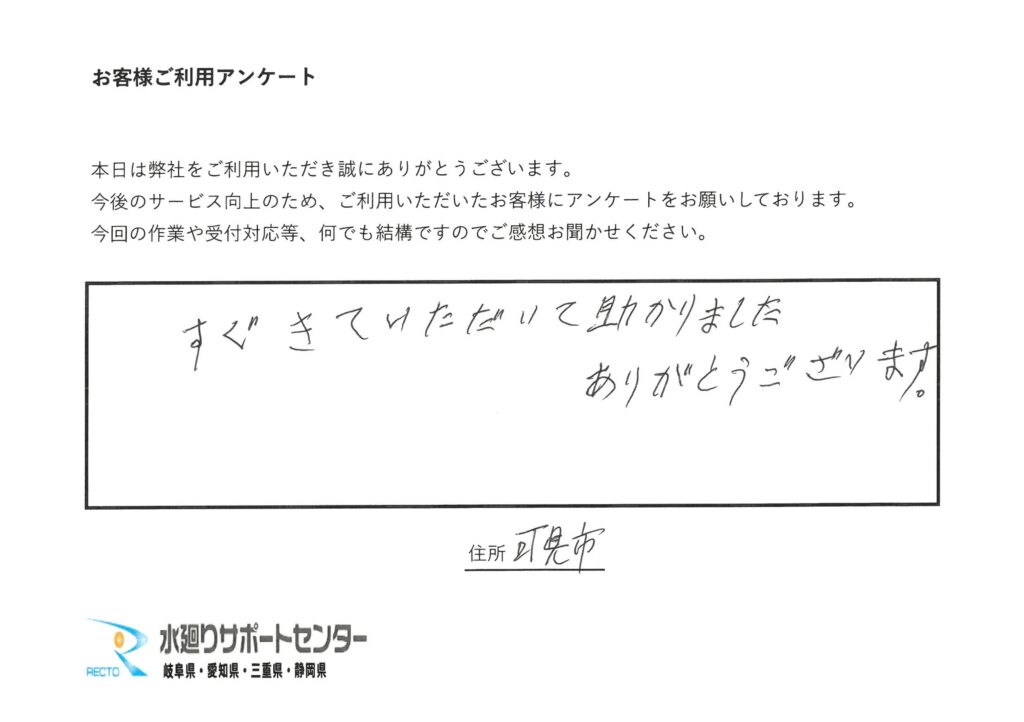 お客様ご利用アンケート
本日は弊社をご利用いただき誠にありがとうございます。
今後のサービス向上のため、ご利用いただいたお客様にアンケートをお願いしております。
今回の作業や受付対応等、何でも結構ですのでご感想お聞かせください。
すぐきていただいて助かりました
ありがとうございます。
住所 可児市
RECTO
水廻りサポートセンター
岐阜県・愛知県・三重県・静岡県